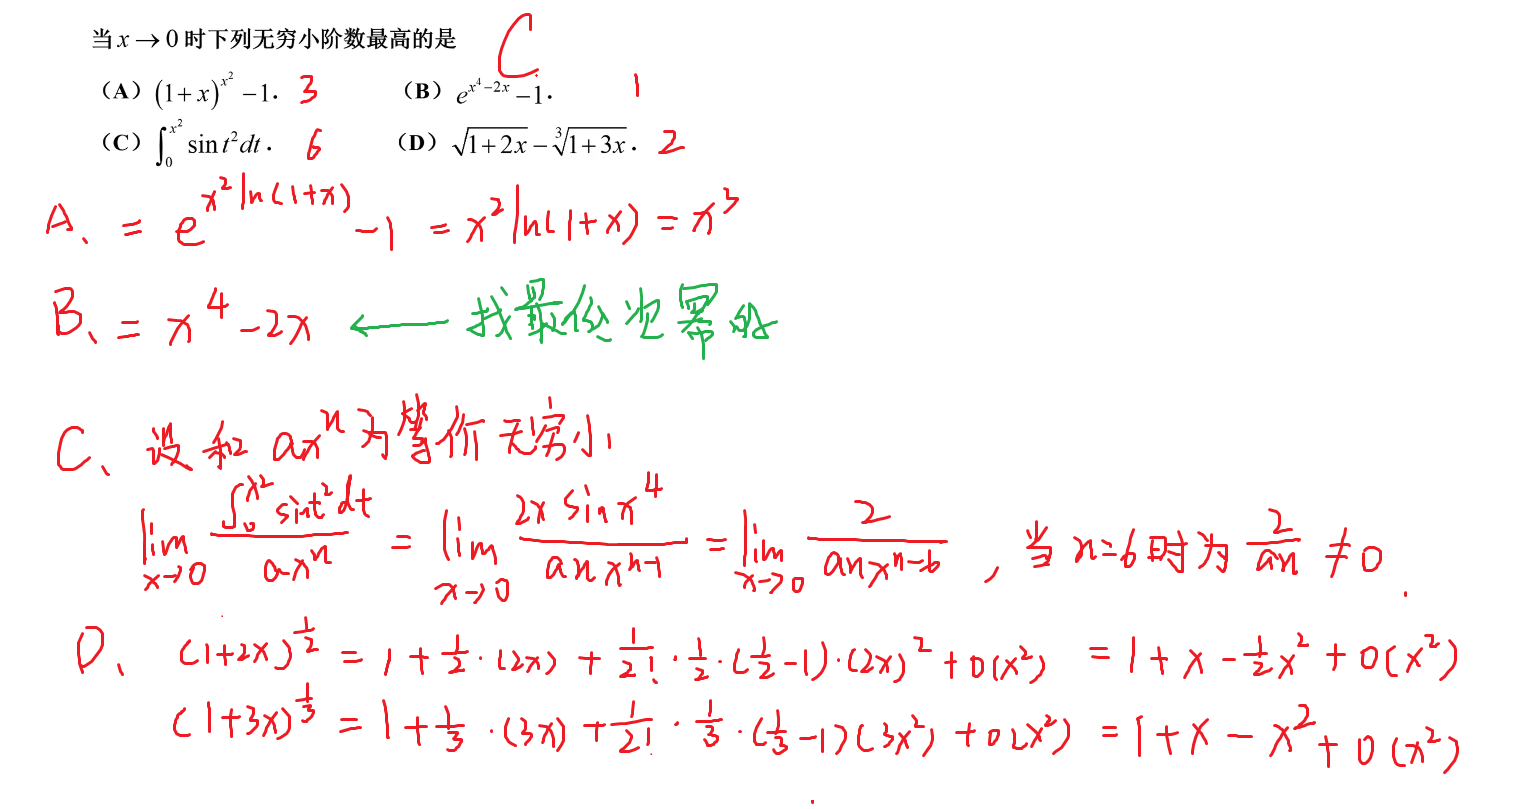 当 x → 0 时下列无穷小阶数最高的是 C
（A）(1+x)^{x^2} −1. 3 （B）e^{x^4−2x} −1. 1
（C）∫_0^{x^2} sin t^2 dt. 6 （D）√(1+2x) − ∛(1+3x). 2
A、= e^{x^2 ln(1+x)} −1 = x^2 ln(1+x) = x^3
B、= x^4 −2x ← 找最低次幂的
C、设和 ax^n 为等价无穷小
lim_{x→0} (∫_0^{x^2} sint^2dt)/(ax^n) = lim_{x→0} (2x sin x^4)/(an x^{n-1}) = lim_{x→0} 2/(an x^{n-6}) , 当 n=6 时为 2/(an) ≠ 0 .
D、(1+2x)^{1/2} = 1 + 1/2·(2x) + 1/2!·1/2·(1/2 −1)·(2x)^2 + o(x^2) = 1 + x − 1/2 x^2 + o(x^2)
(1+3x)^{1/3} = 1 + 1/3·(3x) + 1/2!·1/3·(1/3 −1)(3x^2) + o(x^2) = 1 + x − x^2 + o(x^2)